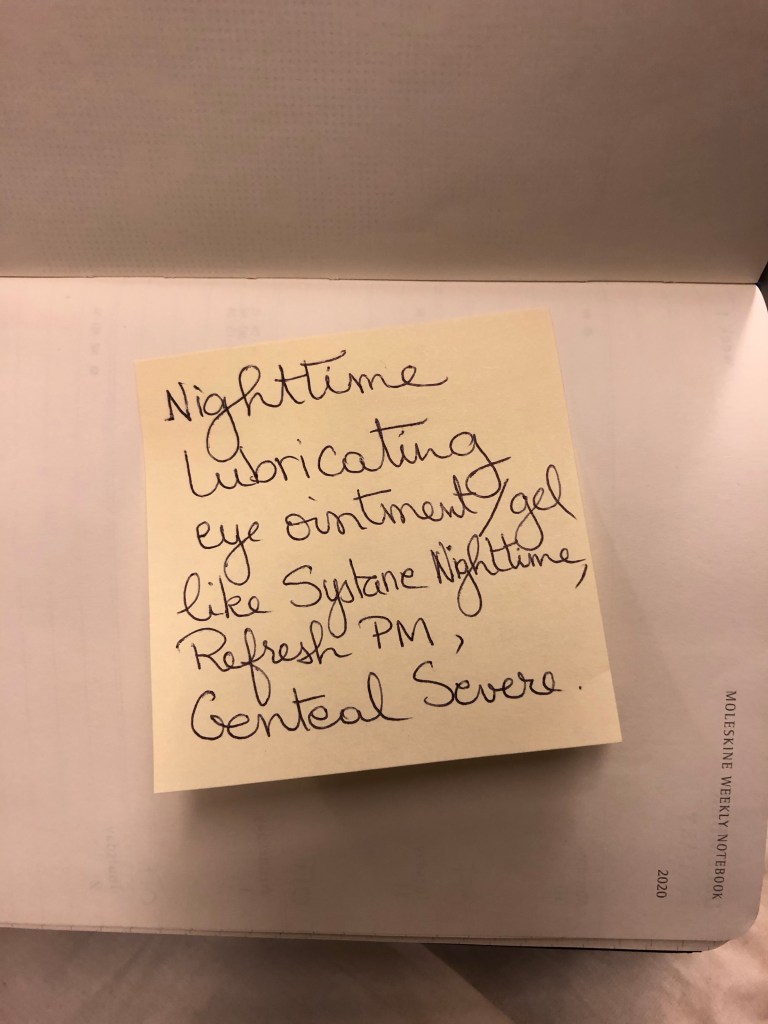 Nighttime
Lubricating
eye ointment/gel
like Systane Nighttime,
Refresh PM,
Genteal Severe.
MOLESKINE WEEKLY NOTEBOOK
2020